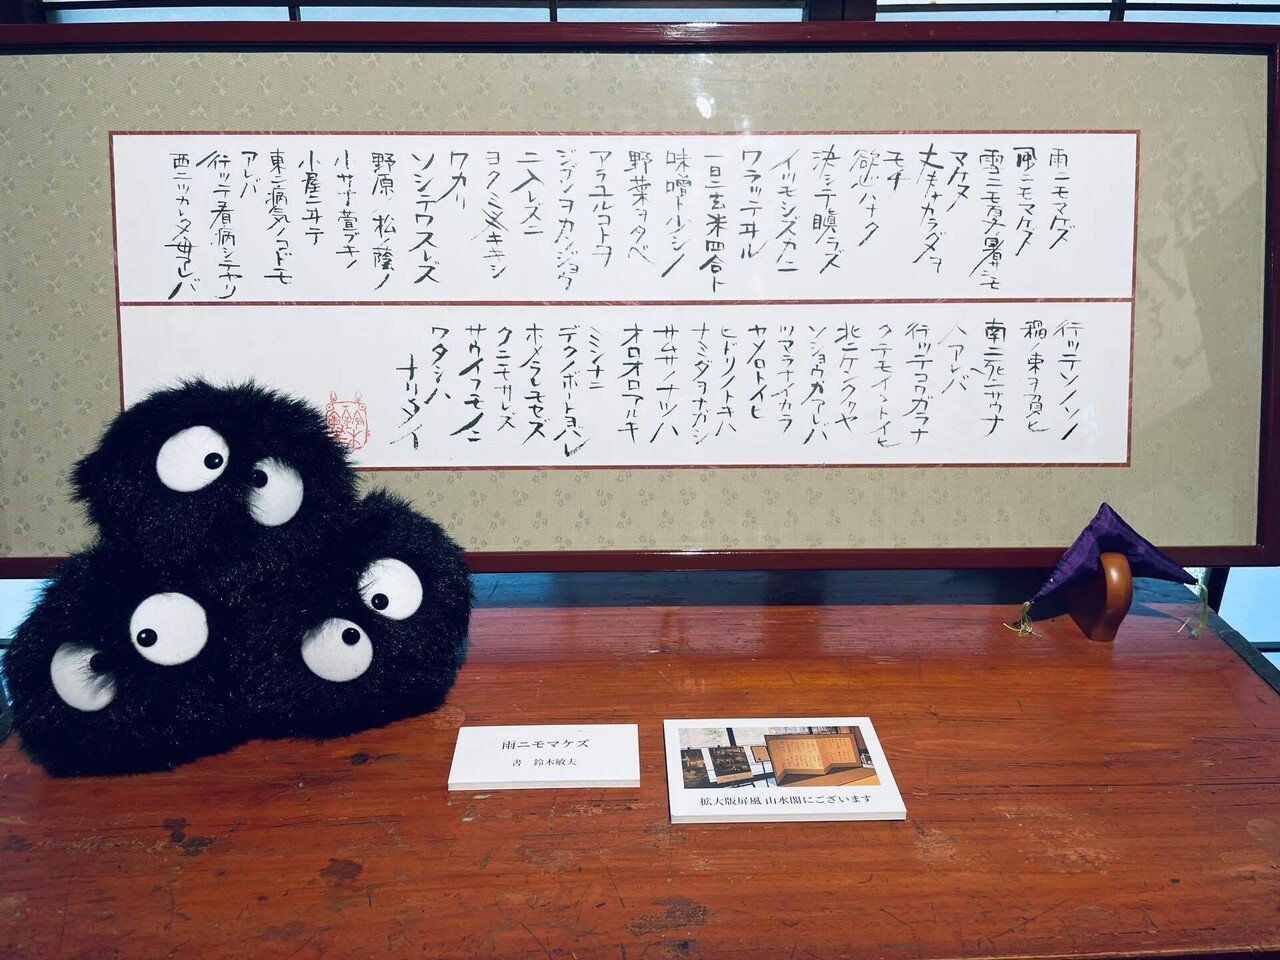 雨ニモマケズ
風ニモマケズ
雪ニモ夏ノ暑サニモ
マケヌ
丈夫ナカラダヲ
モチ
欲ハナク
決シテ瞋ラズ
イツモシズカニ
ワラッテヰル
一日ニ玄米四合ト
味噌ト少シノ
野菜ヲタベ
アラユルコトヲ
ジブンヲカンジョウ
ニ入レズニ
ヨクミキキシ
ワカリ
ソシテワスレズ
野原ノ松ノ蔭ノ
小サナ萱ブキノ
小屋ニヰテ
東ニ病気ノコドモ
アレバ
行ッテ看病シテヤリ
西ニツカレタ母アレバ
行ッテソノ
稲ノ束ヲ負ヒ
南ニ死ニサウナ
人アレバ
行ッテコワガラナ
クテモイヽトイヒ
北ニケンクヮヤ
ソショウガアレバ
ツマラナイカラ
ヤメロトイヒ
ヒドリノトキハ
ナミダヲナガシ
サムサノナツハ
オロオロアルキ
ミンナニ
デクノボートヨバレ
ホメラレモセズ
クニモサレズ
サウイフモノニ
ワタシハ
ナリタイ
雨ニモマケズ
書 鈴木敏夫
拡大版屏風 山水閣にございます